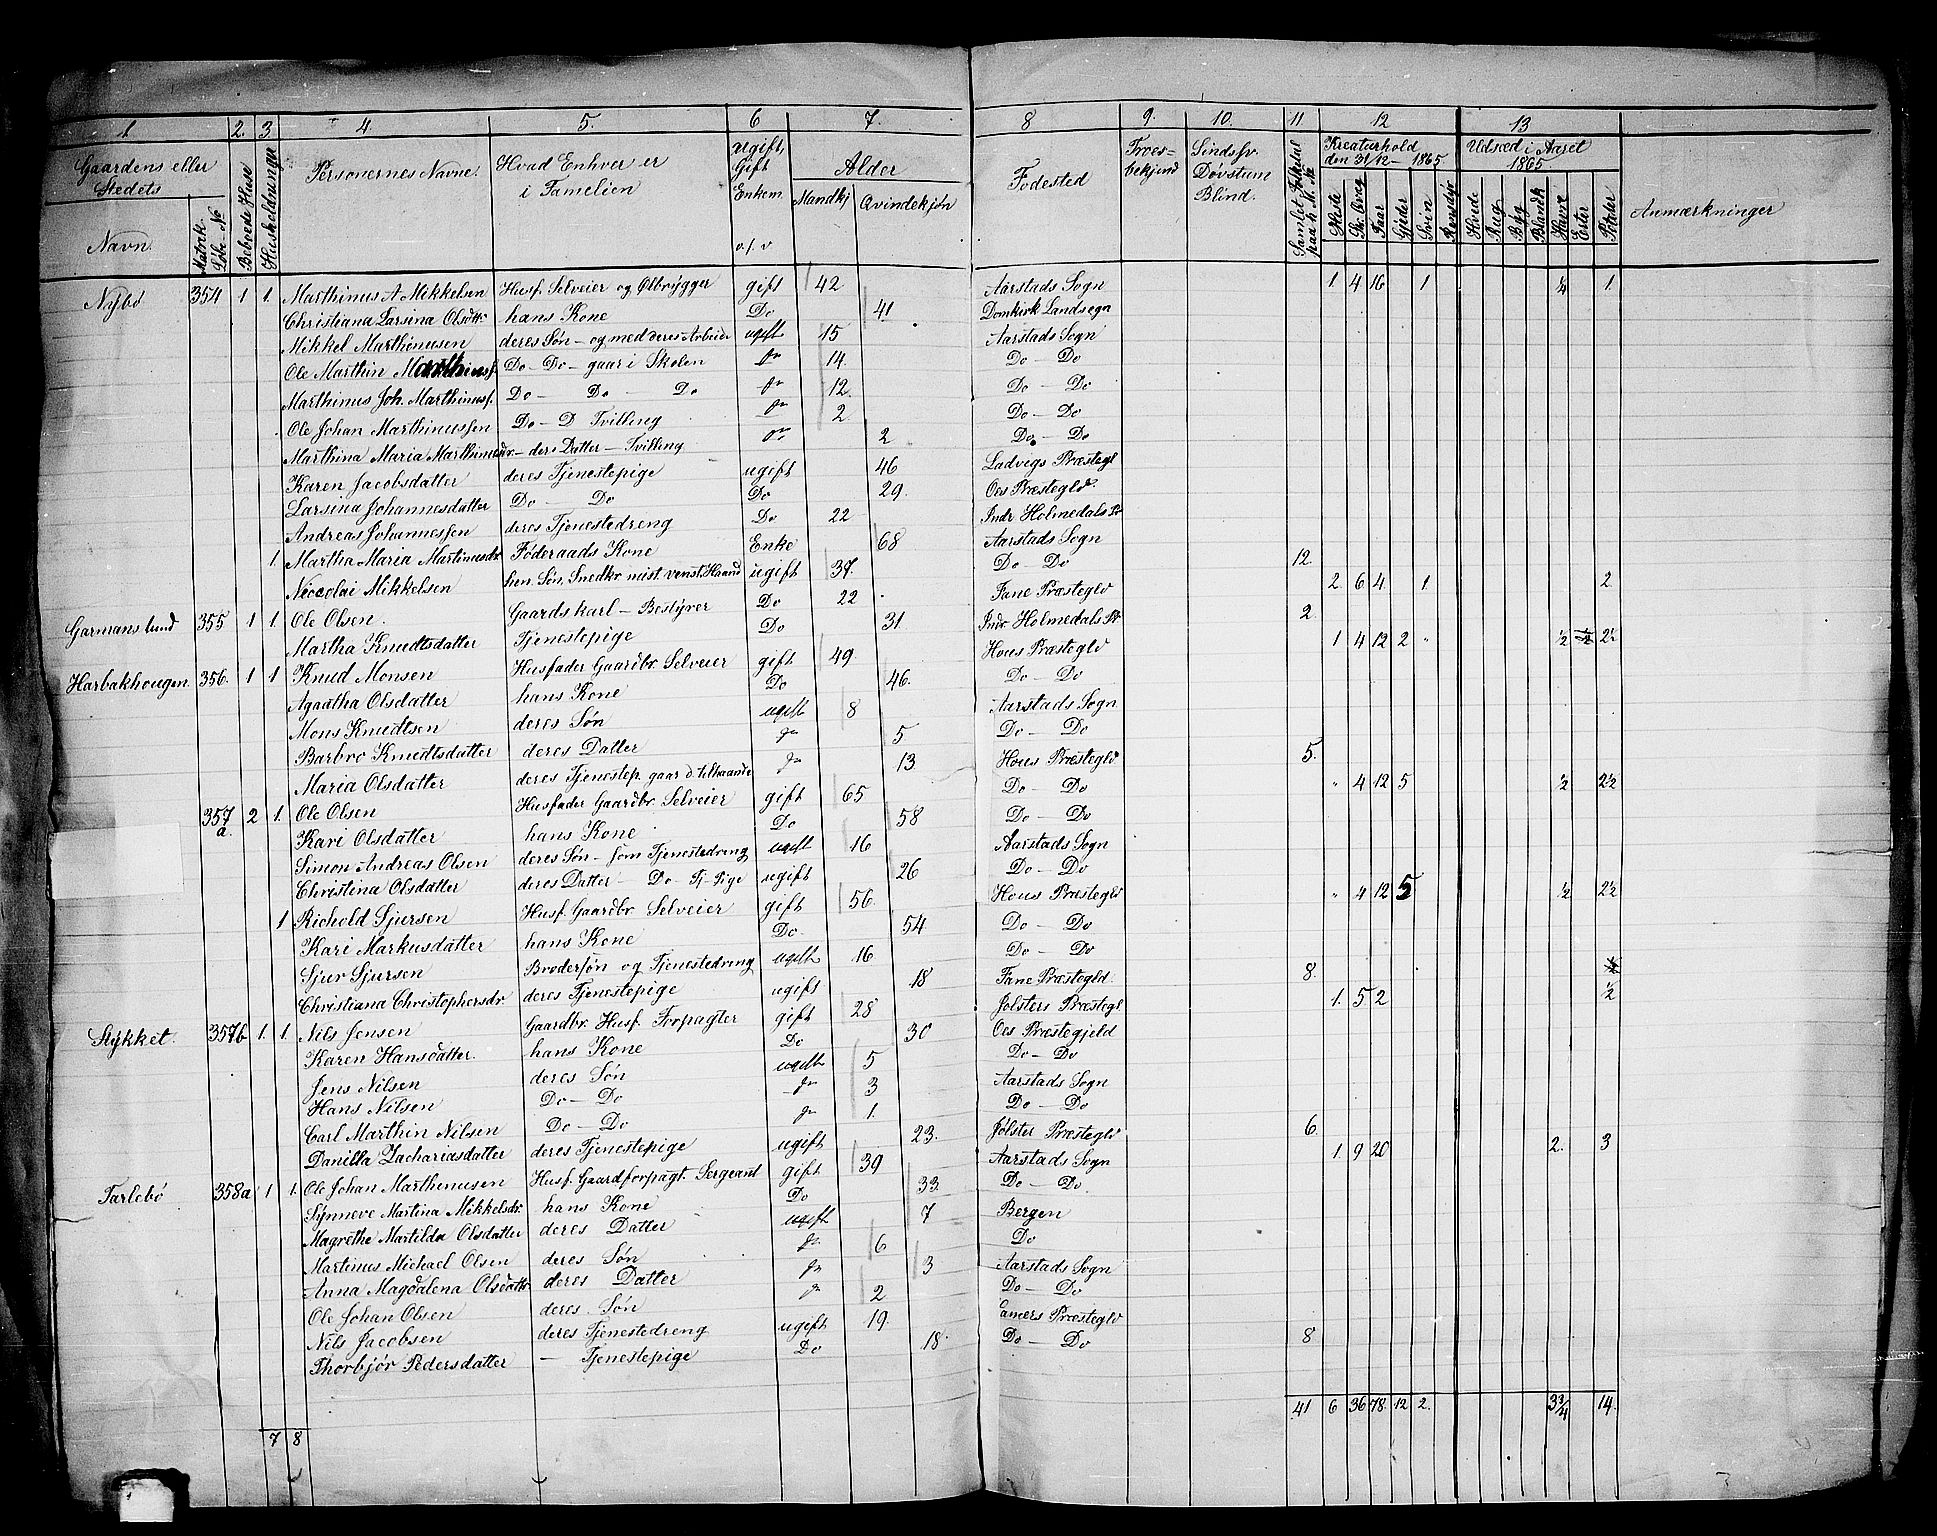 1 2. 3. 4 5. 6 7. 8 9. 10. 11 12 13
Gaardens eller Stedets Navn. Matrik. Løbe-No Beboede Huse Husholdninger Personernes Navne. Hvad Enhver er i Familien ugift, Gift Enkem o.s.v Alder Mandkj Qvindekjøn Fødested Troes=bekjend Sindssv. Døvstum Blind. Samlet Folketal paa h. M. No Kreaturhold den 31/12 - 1865. Heste St. Qvæg Faar Gjeder Svin Rensdyr Udsæd i Aaret 1865 Hvede Rug Byg Blandk Havre Erter Poteter Anmærkninger
Nybø 354 1 1. Marthinus A Mikkelsen Husf. Selveier og Ølbrygger gift 42 Aarstads Sogn 1 4 16 1 ¼ 1
Christiana Larsina Olsdttr hans Kone Do 41 Domkirk Landsogn
Mikkel Marthinusen deres Søn - og med deres Arbeide ugift 15 Aarstads Sogn
Ole Marthin Marthinusf. Do - Do - gaar i Skolen 14. Do - Do
Marthinus Joh. Marthinusf. Do - Do - Do 12. Do - Do
Ole Johan Marthinussen Do - D Tvilling 2 Do - Do
Marthina Maria Marthinusdr - deres Datter - Tvilling 2 Do - Do
Karen Jacobsdatter deres Tjenestepige ugift 46 Ladvigs Præstegl
Larsina Johannesdatter Do - Do Do 29. Oes Præstegld.
Andreas Johannessen deres Tjenestedreng Do 22 Indr Holmedals Pr
1. Martha Maria Martinusdr Føderaads Kone Enke 68 Aarstads Sogn
Niccolai Mikkelsen hen. Søn, Snedkr mist. venst. Haand ugift 37. Do - Do 12.
Garmanslund 355 1 1. Ole Olsen. Gaardskarl - Bestyrer Do 22 Fane Præstegld 2. 6 4 1 2.
Martha Knudtsdatter Tjenestepige Do 31 Indr Holmedals Pr 2.
Harbakhougen 356. 1 1 Knud Monsen Husfader Gaardbr. Selveier gift 49. Hous Præstegld 1 4 12 2 " ½ 2½
Agaatha Olsdatter hans Kone Do 46. Do - Do
Mons Knudtsen deres Søn ugift 8 Aarstads Sogn
Barbro Knudtsdatter deres Datter 5 Do - Do
Maria Olsdatter deres Tjenestep. gaar d. tilhaande 13 Hous Præstegld 5.
357 a. 2 1. Ole Olsen Husfader Gaardbr. Selveier gift 65 Do - Do " 4 12 5 ½ 2½
Kari Olsdatter hans Kone Do 58 Do - Do
Simon Andreas Olsen deres Søn - som Tjenestedreng ugift 16 Aarstads Sogn
Christina Olsdatter deres Datter - Do - Tj-Pige ugift 26 Do - Do
1 Richold Sjursen Husf. Gaardbr. Selveier gift 56. Hous Præstegld " 4 12 5 ½ 2½
Kari Markusdatter hans Kone Do. 54 Do - Do
Sjur Sjursen Brodersøn og Tjenestedreng ugift 16 Do - Do
Christiana Christophersdr deres Tjenestepige ugift 18 Fane Præstegld. 8.
Stykket. 357b 1. 1. Nils Jensen Gaardbr. Husf. Forpagter gift 28 Jølsters Præstegl. 1. 5 2 ½
Karen Hansdatter. hans Kone Do 30 Oes Præstegjeld
Jens Nilsen deres Søn ugift 5 Do - Do
Hans Nilsen Do - Do 3 Aarstads Sogn
Carl Marthin Nilsen Do - Do 1. Do - Do
Danilla Zachariasdatter deres Tjenestepige ugift 23. Jølster Præstegld 6.
Tarlebø 358a 1 1. Ole Johan Marthinusen Husf. Gaardforpagt. Sergeant gift 39 Aarstads Sogn 1 9 20 2. 3
Synneve Martina Mikkelsdr. hans Kone Do 33. Do - Do.
Magrethe Martilda Olsdatter deres Datter ugift 7 Bergen
Martinus Michael Olsen deres Søn 6 Do
Anna Magdalena Olsdattr deres Datter 3 Aarstads Sogn
Ole Johan Olsen deres Søn 2 Do - Do
Nils Jacobsen deres Tjenestedreng ugift 19. Præstegld
Thorbjør Pedersdatter - Tjenestepige Do 18. Do - Do 8
7 8 41 6 36 78. 12 2. 3¾ 14.